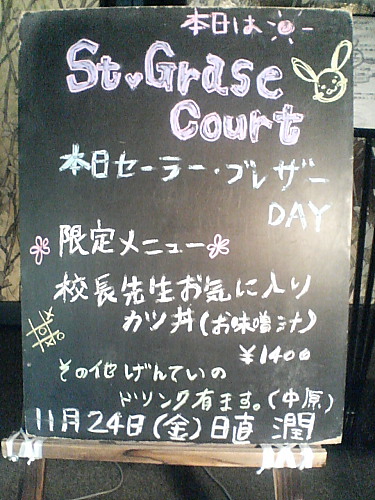 本日は
St♥Grase
Court
本日セーラー・ブレザー
DAY
限定メニュー
校長先生お気に入り
カツ丼(お味噌汁)
¥1400
その他げんていの
ドリンク有ます。(中原)
11月24日(金)日直 潤